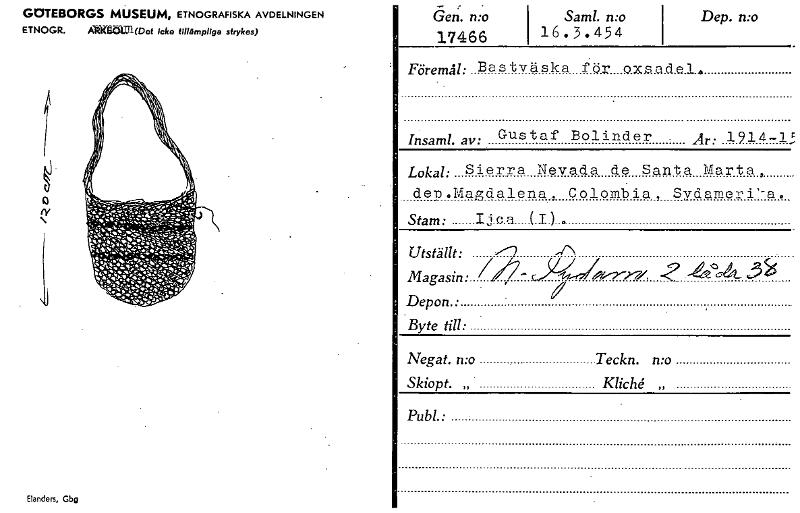 GÖTEBORGS MUSEUM, ETNOGRAFISKA AVDELNINGEN
ETNOGR. ARKEOL. (Det icke tillämpliga strykes)
120 cm
Elanders, Gbg
Gen. n:o Saml. n:o Dep. n:o
17466 16.3.454
Föremål: Bastväska för oxsadel.
Insaml. av: Gustaf Bolinder År: 1914-15
Lokal: Sierra Nevada de Santa Marta,
dep.Magdalena, Colombia, Sydamerika.
Stam: Ijca (I).
Utställt:
Magasin: 2 låda 38
Depon.:
Byte till:
Negat. n:o Teckn. n:o
Skiopt. „ Kliché „
Publ.: